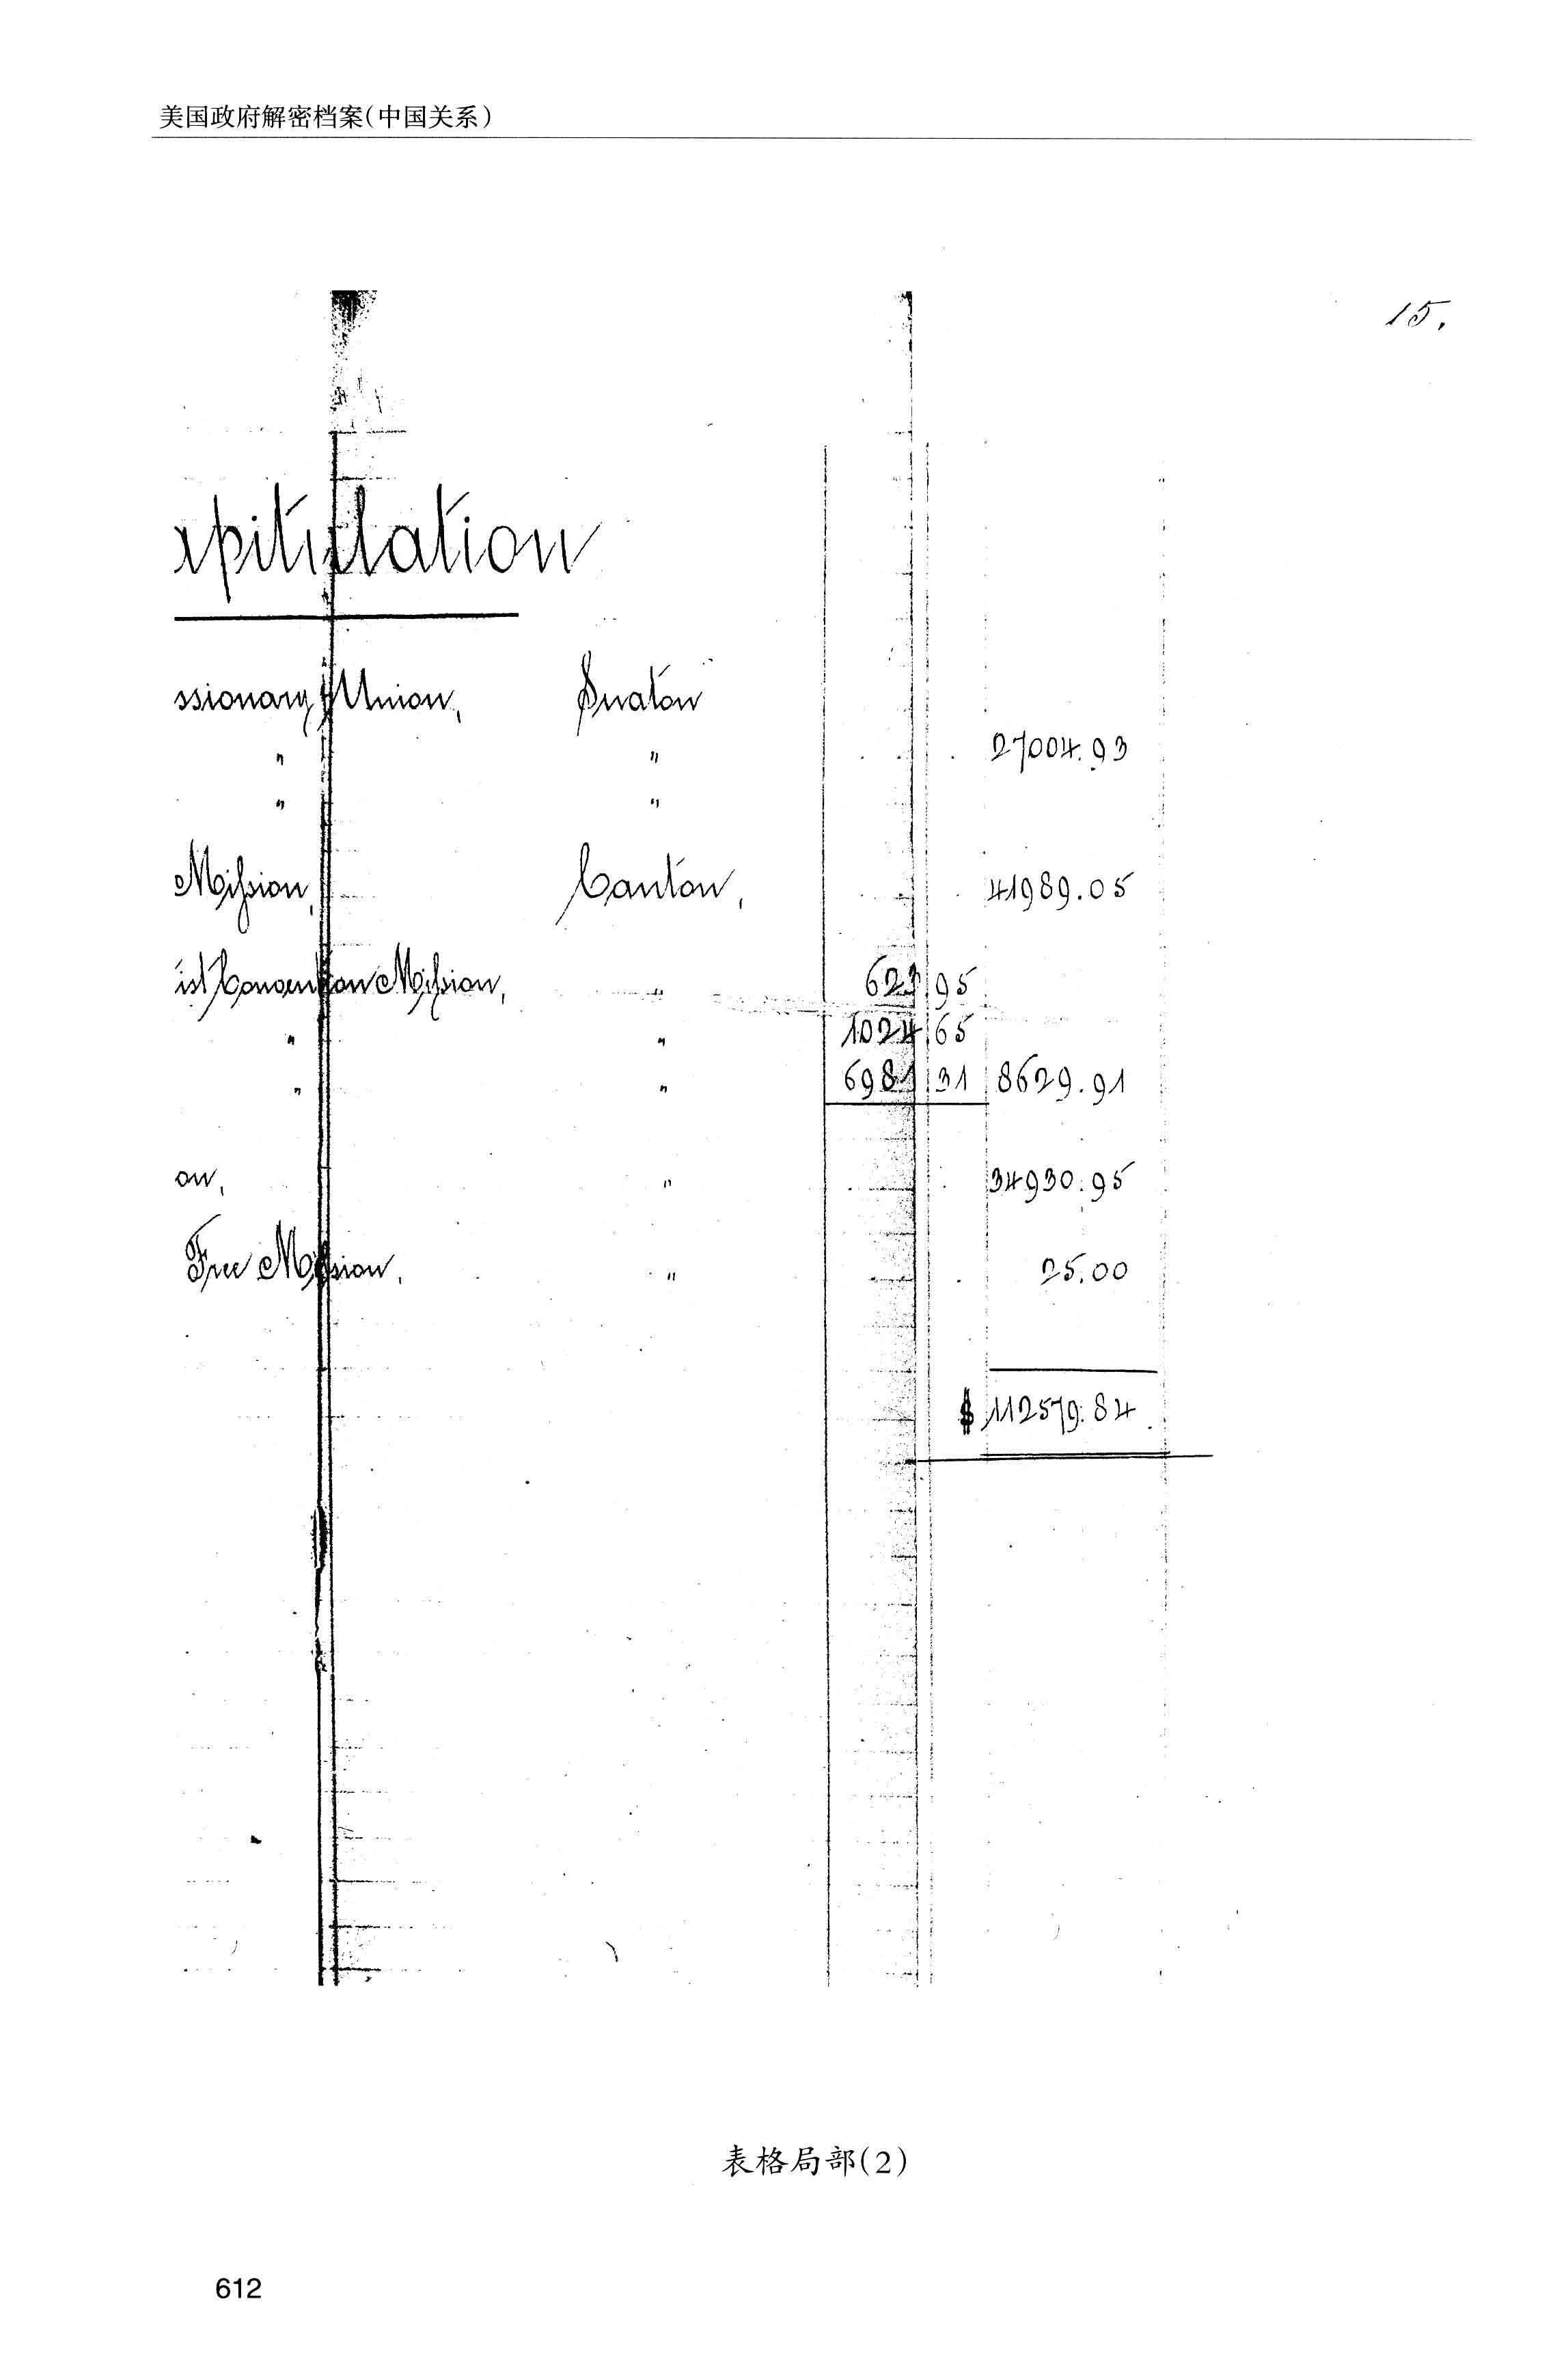 美国政府解密档案(中国关系)
15.
apitulation
ssionary Union, Swatow
" " 27004.93
" "
Mission, Canton, 41989.05
ist Convention Mission, " 623 95
" " 1024 65
" " 6981 31 8629.91
on, " 34930.95
Free Mission, " 25.00
$ 112579.84
表格局部(2)
612